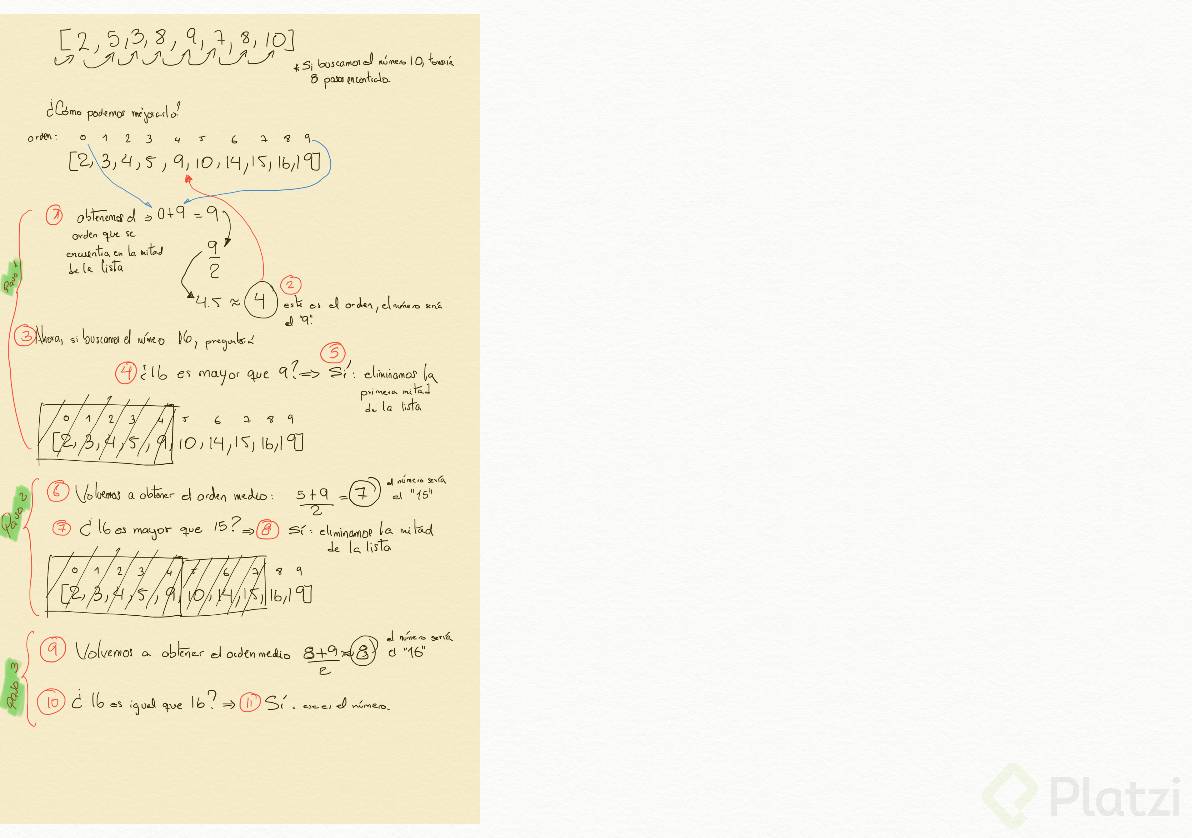 [2, 5, 3, 8, 9, 7, 8, 10]
* Si buscamos el número 10, tomaría
8 pasos encontrarlo
¿Cómo podemos mejorarlo?
orden: 0 1 2 3 4 5 6 7 8 9
[2, 3, 4, 5, 9, 10, 14, 15, 16, 19]
Paso 1
1 obtenemos el ⇒ 0+9 = 9
orden que se
encuentra en la mitad
de la lista
9
2
4.5 ≈ 4
2
este es el orden, el número sería
el "9".
3 Ahora, si buscamos el número 16, preguntará
4 ¿16 es mayor que 9? ⇒ 5 Sí: eliminamos la
primera mitad
de la lista
0 1 2 3 4 5 6 7 8 9
[2, 3, 4, 5, 9, 10, 14, 15, 16, 19]
Paso 2
6 Volvemos a obtener el orden medio: 5+9 = 7
2
el número sería
el "15"
7 ¿16 es mayor que 15? ⇒ 8 Sí: eliminamos la mitad
de la lista
0 1 2 3 4 5 6 7 8 9
[2, 3, 4, 5, 9, 10, 14, 15, 16, 19]
Paso 3
9 Volvemos a obtener el orden medio 8+9 ≈ 8
2
el número sería
el "16"
10 ¿16 es igual que 16? ⇒ 11 Sí. ese es el número.
Platzi